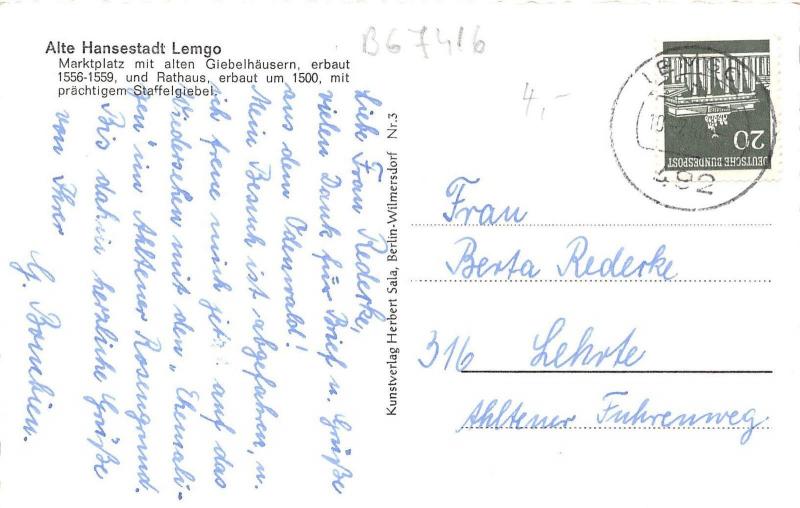 Alte Hansestadt Lemgo
Marktplatz mit alten Giebelhäusern, erbaut
1556-1559, und Rathaus, erbaut um 1500, mit
prächtigem Staffelgiebel.
B67416
4,-
Liebe Frau Rederke,
vielen Dank für Brief u. Grüße
aus dem Odenwald!
Mein Besuch ist abgefahren, u.
ich freue mich jetzt auf das
Wiedersehen mit den „Ehemali-
gen" im Ahltener Rosengrund.
Bis dahin herzliche Grüße
von Ihrer
G.
Kunstverlag Herbert Sala, Berlin-Wilmersdorf Nr.3
20
DEUTSCHE BUNDESPOST
LEMGO
10
492
Frau
Berta Rederke
316 Lehrte
Ahltener Fuhrenweg